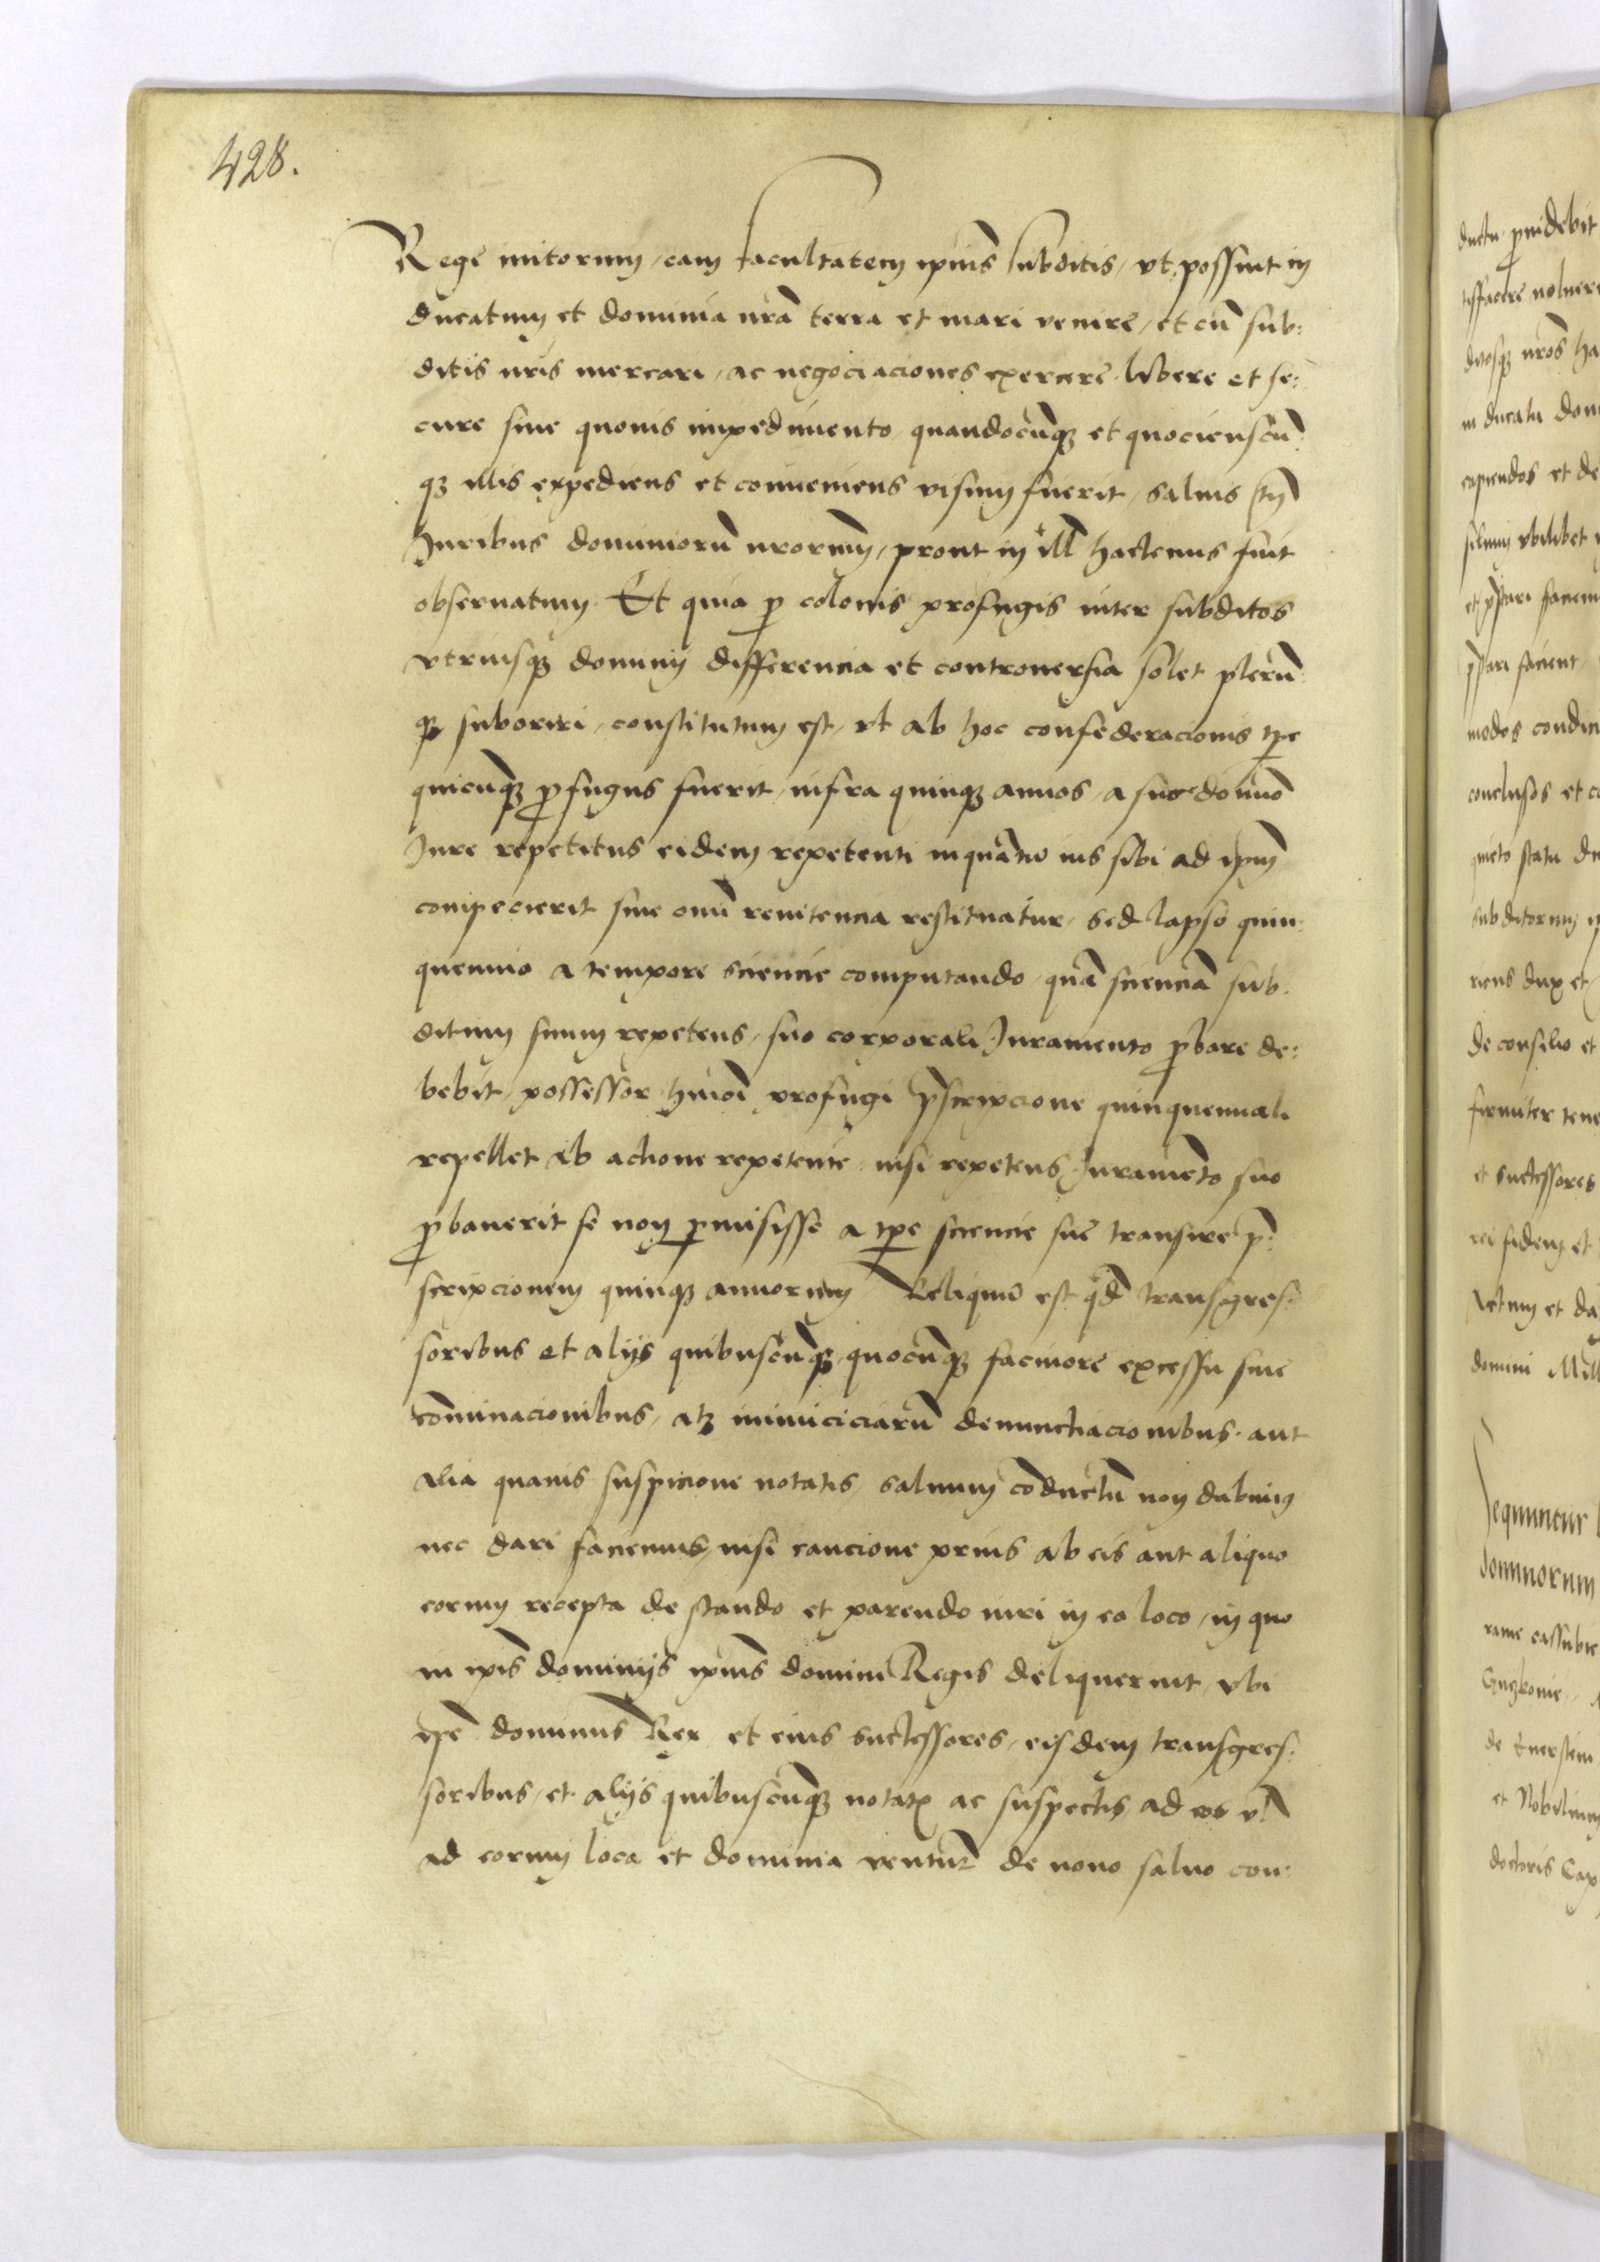 428.
Rege initorum, eam facultatem ipius subditis, vt possint in
ducatum et dominia nrã terra et mari venire, et cũ sub:
ditis nris mercari, ac negociaciones exercere libere et se:
cure sine quouis impedimento quandocunqз et quocienscũ:
qз illis expediens et conueniens visum fuerit, saluis tñ
Juribus dominiorũ nrorum, prout in ill hactenus fuit
obseruatum. Et quia p colonis profugis inter subditos
vtriusqз dominij differencia et controuersia solet plerũ
qз suboriri, constitutum est, vt ab hoc confederacionis tpe
quicunqз pfugus fuerit, infra quinqз annos, a suo domino
Jure repetitus eidem repetenti inquãtũ ius sibi ad ipm
competierit sine omi renitencia restituatur, sed lapso quin:
quennio a tempore sciencie computando, quã scienciã sub:
ditum suum repetens, suo corporali Juramento pbare de:
bebit, possessor huiõi profugi pscripcione quinquennali
repellet ab actione repetente, nisi repetens Juramẽto suo
pbauerit se non pmisisse a tpe sciencie sue transire p:
scripcionem quinqз annorum Reliquũ est qd transgres:
soribus et alijs quibuscunqз, quocunqз facinore excessu siue
cõminacionibus, atqз inimiciciarũ denunctiacionibus, aut
alia quauis suspicione notatis, saluum cõductũ non dabimus
nec dari faciemus, nisi caucione prius ab eis aut aliquo
eorum recepta de stando et parendo iuri in eo loco, in quo
in ipis dominijs ipius domini Regis deliquerint, vbi
ipe dominus Rex et eius successores, eisdem transgres:
soribus, et alijs quibuscunqз notatis ac suspectis ad eos vl
ad eorum loca et dominia ventur de nouo saluo con:
ductu puidebit
ditosqз nros ha
in ducatu dom
capiendos et de
vbilibet
et pstari faciem
pstari facient
modos condic
conclusos et co
quieto statu du
subditorum
riens dux et
de consilio et
firmiter tene
et successores
rei fidem et
Actum et da
domini Mill
Sequuntur
dominorum
rame cassubie
de Euerstein
et Nobilium
doctoris Cap